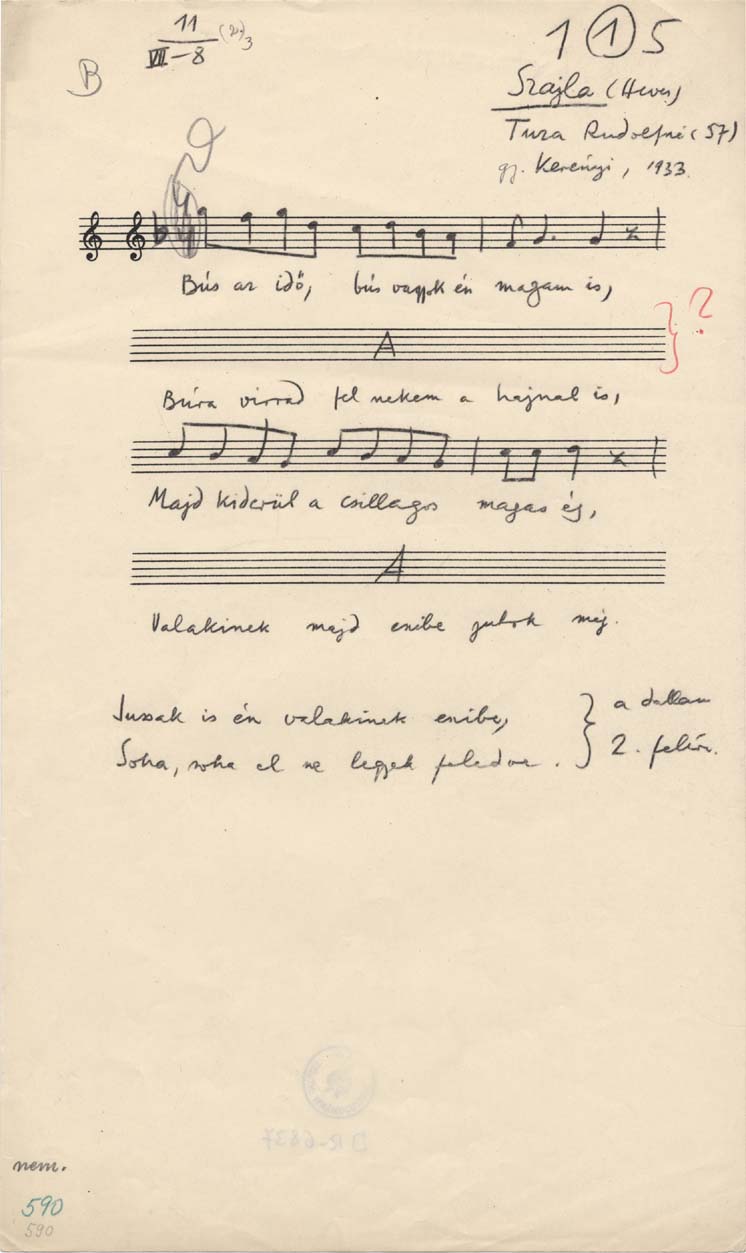 11
VII-8
B
1 1 5
Szajla (Heves)
Tuza Rudolfné (57)
gy. Kerényi, 1933.
Bús az idő, bús vagyok én magam is,
A
?
Búra virrad fel nekem a hajnal is,
Majd kiderül a csillagos magas ég,
A
Valakinek majd eszibe jutok még.
Jussak is én valakinek eszibe,
Soha, soha el ne legyek feledve.
a dallam
2. felére.
DR-6837
nem.
590
590